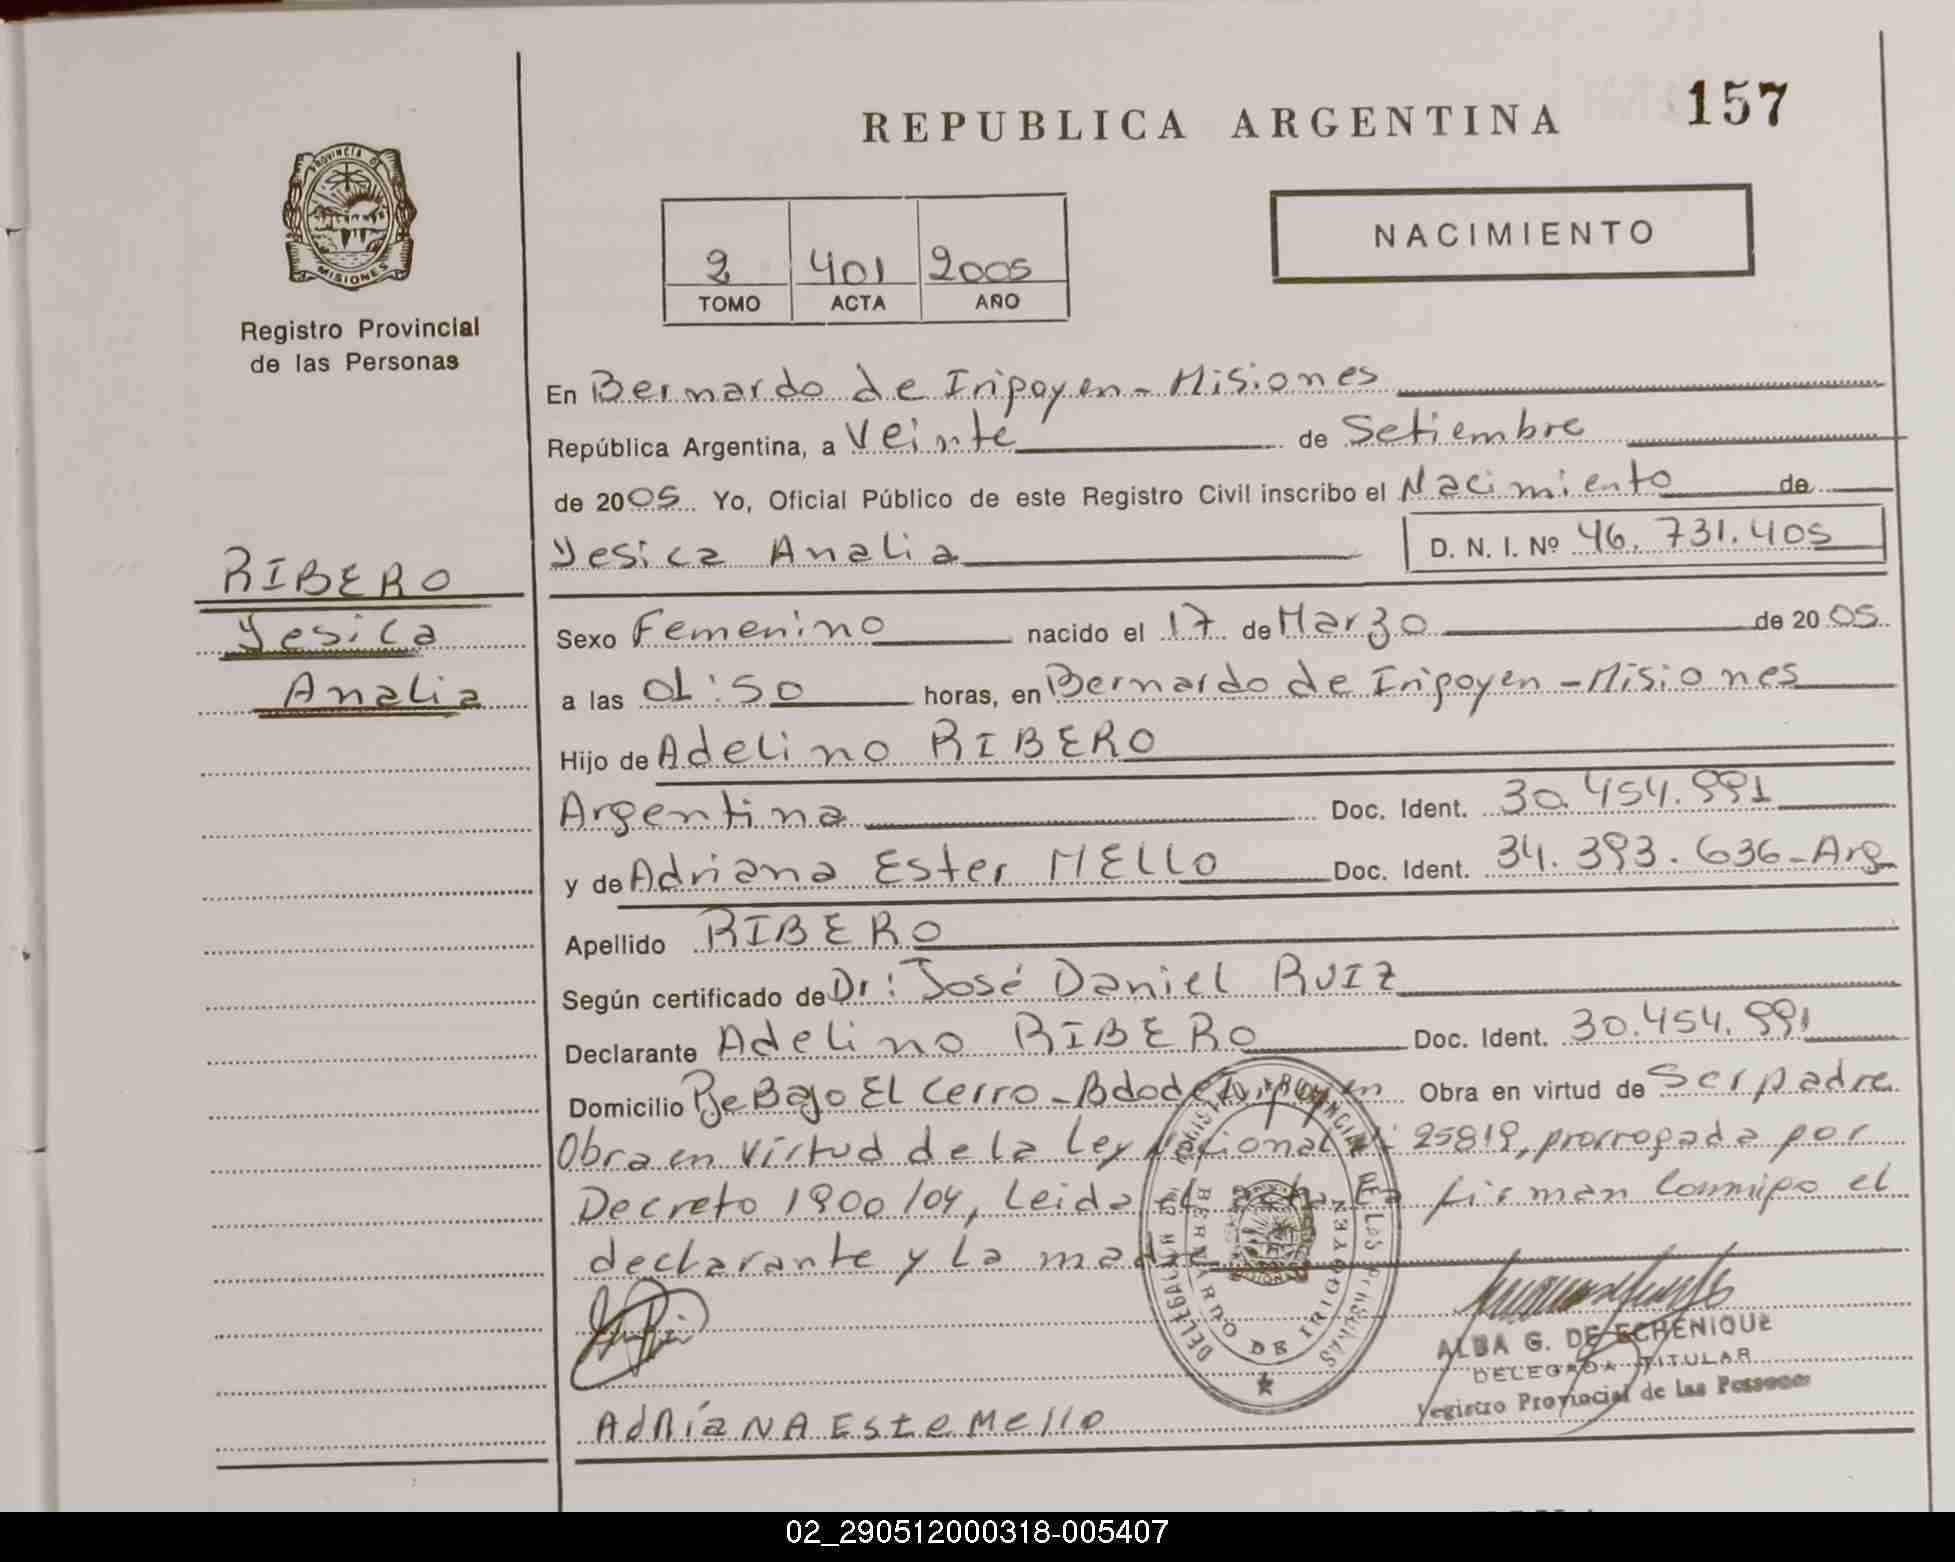 REPUBLICA ARGENTINA
157
PROVINCIA DE
MISIONES
Registro Provincial
de las Personas
2 401 2005
TOMO ACTA AÑO
NACIMIENTO
En Bernardo de Irigoyen - Misiones
República Argentina, a Veinte de Setiembre
de 2005 Yo, Oficial Público de este Registro Civil inscribo el Nacimiento de
Yesica Analia D. N. I. Nº 46.731.405
RIBERO
Yesica
Analia
Sexo Femenino nacido el 17 de Marzo de 2005
a las 01:50 horas, en Bernardo de Irigoyen - Misiones
Hijo de Adelino RIBERO
Argentina Doc. Ident. 30.454.991
y de Adriana Ester MELLO Doc. Ident. 34.393.636-Arg
Apellido RIBERO
Según certificado de Dr: José Daniel RUIZ
Declarante Adelino RIBERO Doc. Ident. 30.454.991
Domicilio Bajo El Cerro - Bdo de Irigoyen Obra en virtud de Ser padre
Obra en virtud de la Ley Nacional 25819, prorrogada por
Decreto 1900/04, Leida el acta La firman Conmigo el
declarante y La madre
DELEGACION REGISTRO PROVINCIAL DE LAS PERSONAS
BERNARDO DE IRIGOYEN
ALBA G. DE ECHENIQUE
DELEGADA TITULAR
Registro Provincial de las Personas
AdRiaNA EstE Mello
02_290512000318-005407